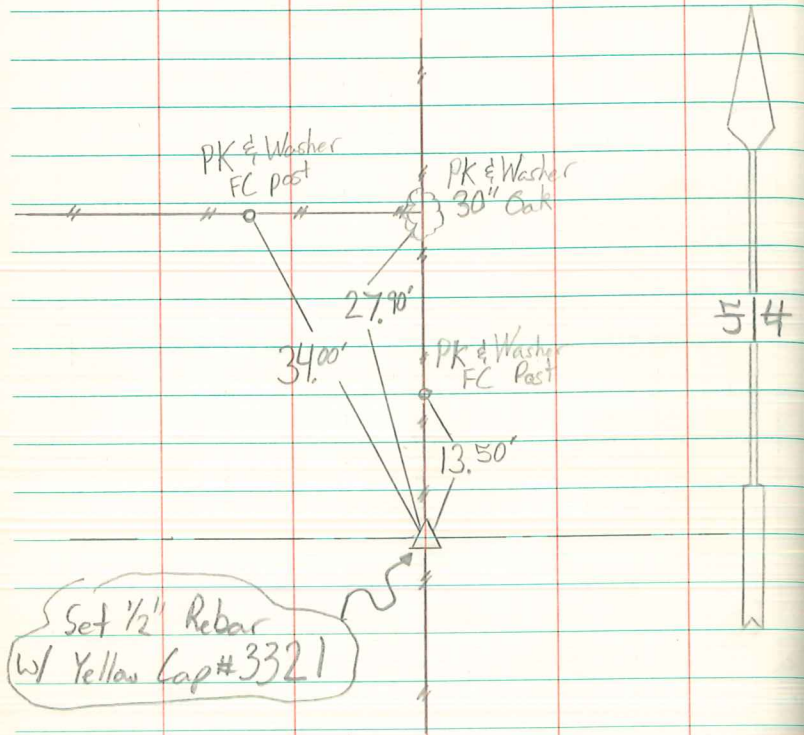 PK & Washer
FC post
PK & Washer
30" Oak
27.90'
34.00'
5|4
PK & Washer
FC Post
13.50'
Set 1/2" Rebar
w/ Yellow Cap #3321